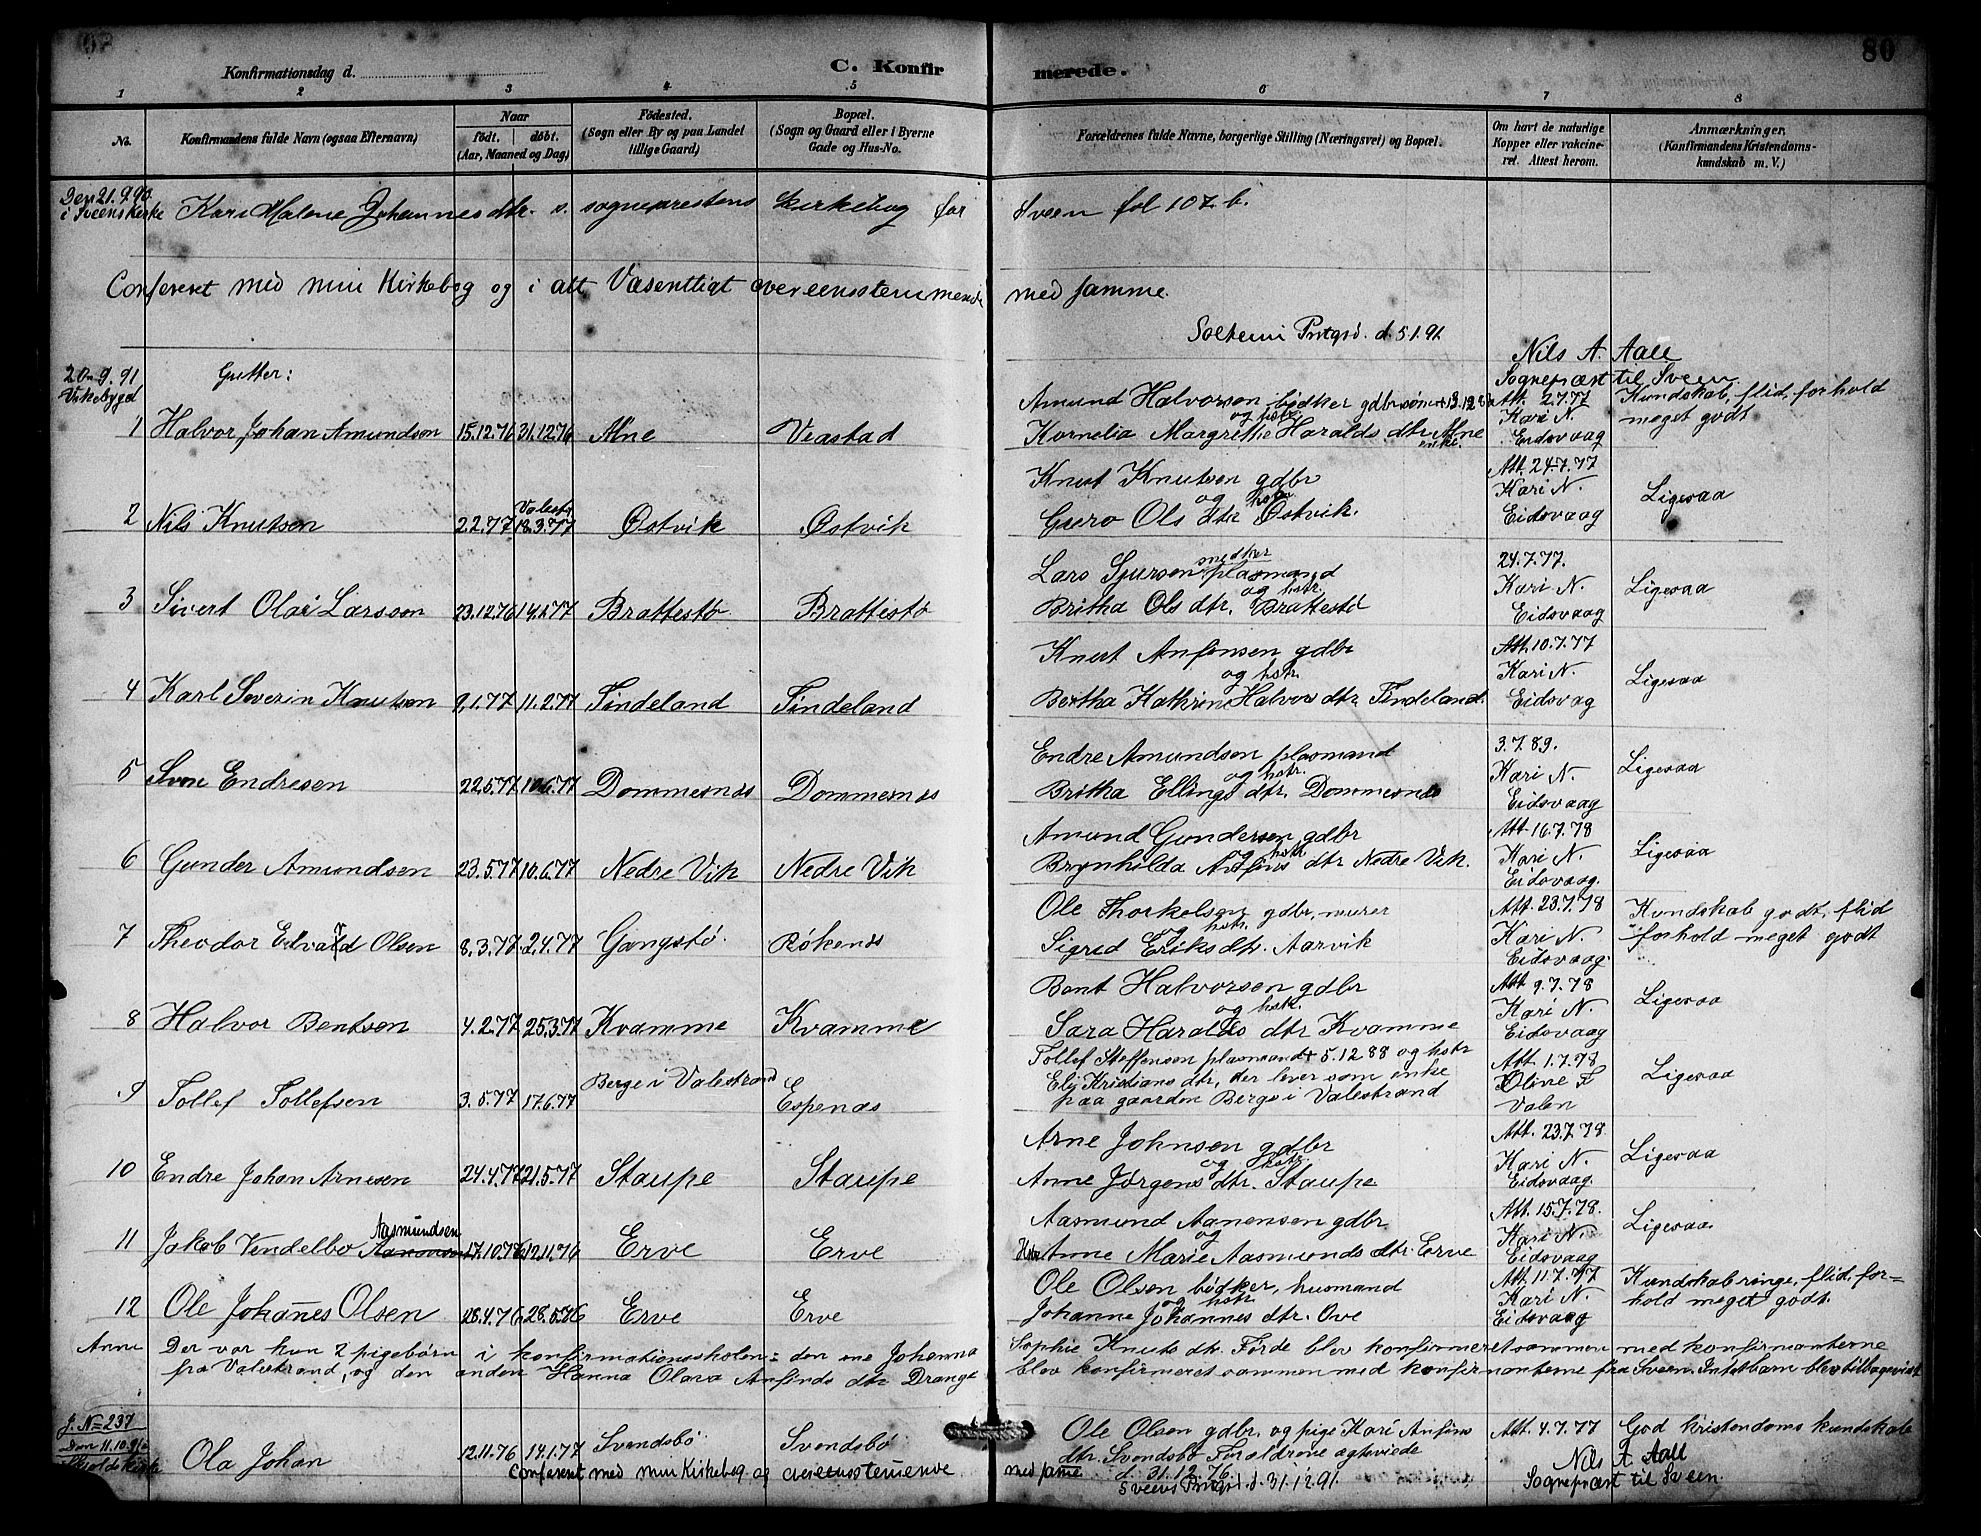 80
Konfirmationsdag d.
C. Konfir merede.
1 2 3 4 5 6 7 8
No.
Konfirmandens fulde Navn (ogsaa Efternavn)
Naar
født. døbt.
(Aar, Maaned og Dag)
Fødested.
(Sogn eller By og paa Landet
tillige Gaard)
Bopæl.
(Sogn og Gaard eller i Byerne
Gade og Hus-No.
Forældrenes fulde Navne, borgerlige Stilling (Næringsvei) og Bopæl.
Om havt de naturlige
Kopper eller vakcine-
ret. Attest herom.
Anmærkninger,
(Konfirmandens Kristendoms-
kundskab m. V.)
Den 21.9.90
i Sveens kirke
Kari Malene Johannesdtr. s. sogneprestens kirkebog for Sveen fol 107 b.
Confereret med min Kirkebog og i alt Væsentligt overeensstemmende med samme.
Prstgrd. d. 5.1.91
Nils A. Aall
Sognepræst til Sveen.
20-9.91
Vikebygd
Gutter:
1 Halvor Johan Amundson 15.12.76 31.12.76 Alne Veastad
Amund Halvorsen bødker gdbr søn
og hstr.
Kornelia Margrethe Haralds dtr Alne
enke.
Att. 2.7.77
Kari N.
Eidsvaag
Kundskab, flid, forhold
meget godt
2 Nils Knutsen 2.2.77 18.3.77 Østvik Østvik
Knut Knutsen gdbr
og hstr
Guro Ols dtr Østvik.
Att. 24.7.77
Kari N.
Eidsvaag
Ligesaa
3 Sivert Olai Larsson 23.12.76 14.1.77 Brattestø Brattestø
Lars Sjursen plasmand
og hstr.
Britha Ols dtr. Brattestø
24.7.77.
Kari N.
Eidsvaag
Ligesaa
4 Karl Severin Knutsen 9.1.77 11.2.77 Tindeland Tindeland
Knut Anfinsen gdbr
og hstr.
Bertha Kathrine Halvors dtr Tindeland.
Att. 10.7.77
Kari N.
Eidsvag
Ligesaa
5 Endresen 22.5.77 10.6.77 Dommesnes Dommesnes
Endre Amundsen plasmand
og hstr.
Britha Ellings dtr. Dommesnes
3.7.89.
Kari N.
Eidsvaag
Ligesaa
6 Gunder Amundsen 23.5.77 10.6.77 Nedre Vik Nedre Vik
Amund Gundersen gdbr
og hstr.
Brynhilda Anfins dtr Nedre Vik.
Att 16.7.78
Kari N.
Eidsvaag.
Ligesaa
7 Theodor Edvard Olsen 8.3.77 2.4.77 Gangstø Røkenes
Ole Thorkelsen gdbr, murer
og hstr.
Sigrid Eriks dtr. Aarvik
Att. 23.7.78
Kari N.
Eidsvaag.
Kundskab godt, flid
forhold meget godt
8 Halvor Bentsen 4.2.77 25.3.77 Kvamme Kvamme
Bent Halvorsen gdbr
og hstr.
Sara Haralds dtr Kvamme
Att 9.7.78
Kari N.
Eidsvaag
Ligesaa
9 Tollef Tollefsen 3.5.77 17.6.77 Berge i Valestrand Espenæs
Tollef Steffensen plasmand + 5.12 88 og hstr
Eli Kristians dtr, der lever som enke
paa gaarden Berge i Valestrand
Att. 1.7.78
Oline T
Valen
Ligesaa
10 Endre Johan Arnesen 24.4.77 21.5.77 Staupe Staupe
Arne Johnsen gdbr
og hstr.
Anne Jørgens dtr. Staupe
Att. 23.7.78
Kari N.
Eidsvaag
Ligesaa
11 Jakob Vendelbo Aasmundsen 17.10.76 12.11.76 Erve Erve
Aasmund Aanensen gdbr
og
Hstr. Anne Marie Aasmunds dtr. Erve
Att. 15.7.78.
Kari N.
Eidsvaag
Ligesaa
12 Ole Johannes Olsen 28.4.76 28.5.76 Erve Erve
Ole Olsen bødker, husmand
og hstr.
Johanne Johannes dtr. Ove
Att. 11.7.77
Kari N.
Eidsvaag
Kundskab ringe, flid, for-
hold meget godt.
Anm Der var kun 2 pigebørn i konfirmationsskolen: den ene Johanna Sophie Knuts dtr. Førde blev konfirmeret sammen med konfirmanterne
fra Valestrand, og den anden Hanna Olava Anfinds dtr Drange blev konfirmeret sammen med konfirmanterne fra Sveen. Intet barn blev tilbagevist
J. No 237
Den 11.10.91
Ola Johan 12.11.76 14.1.77 Svendsbø Svendsbø
Ole Olsen gdbr, og pige Kari Anfins
dtr. Svendsbø Forældrene egteviede
d. 31.12.76.
Att. 4.7.77
God kristendoms kundskab
Confereret med min Kirkebog og overensstemmende med samme
Sveens Prstgrd. d. 31.12.91
Nils A Aall
Sognepræst til Sveen.